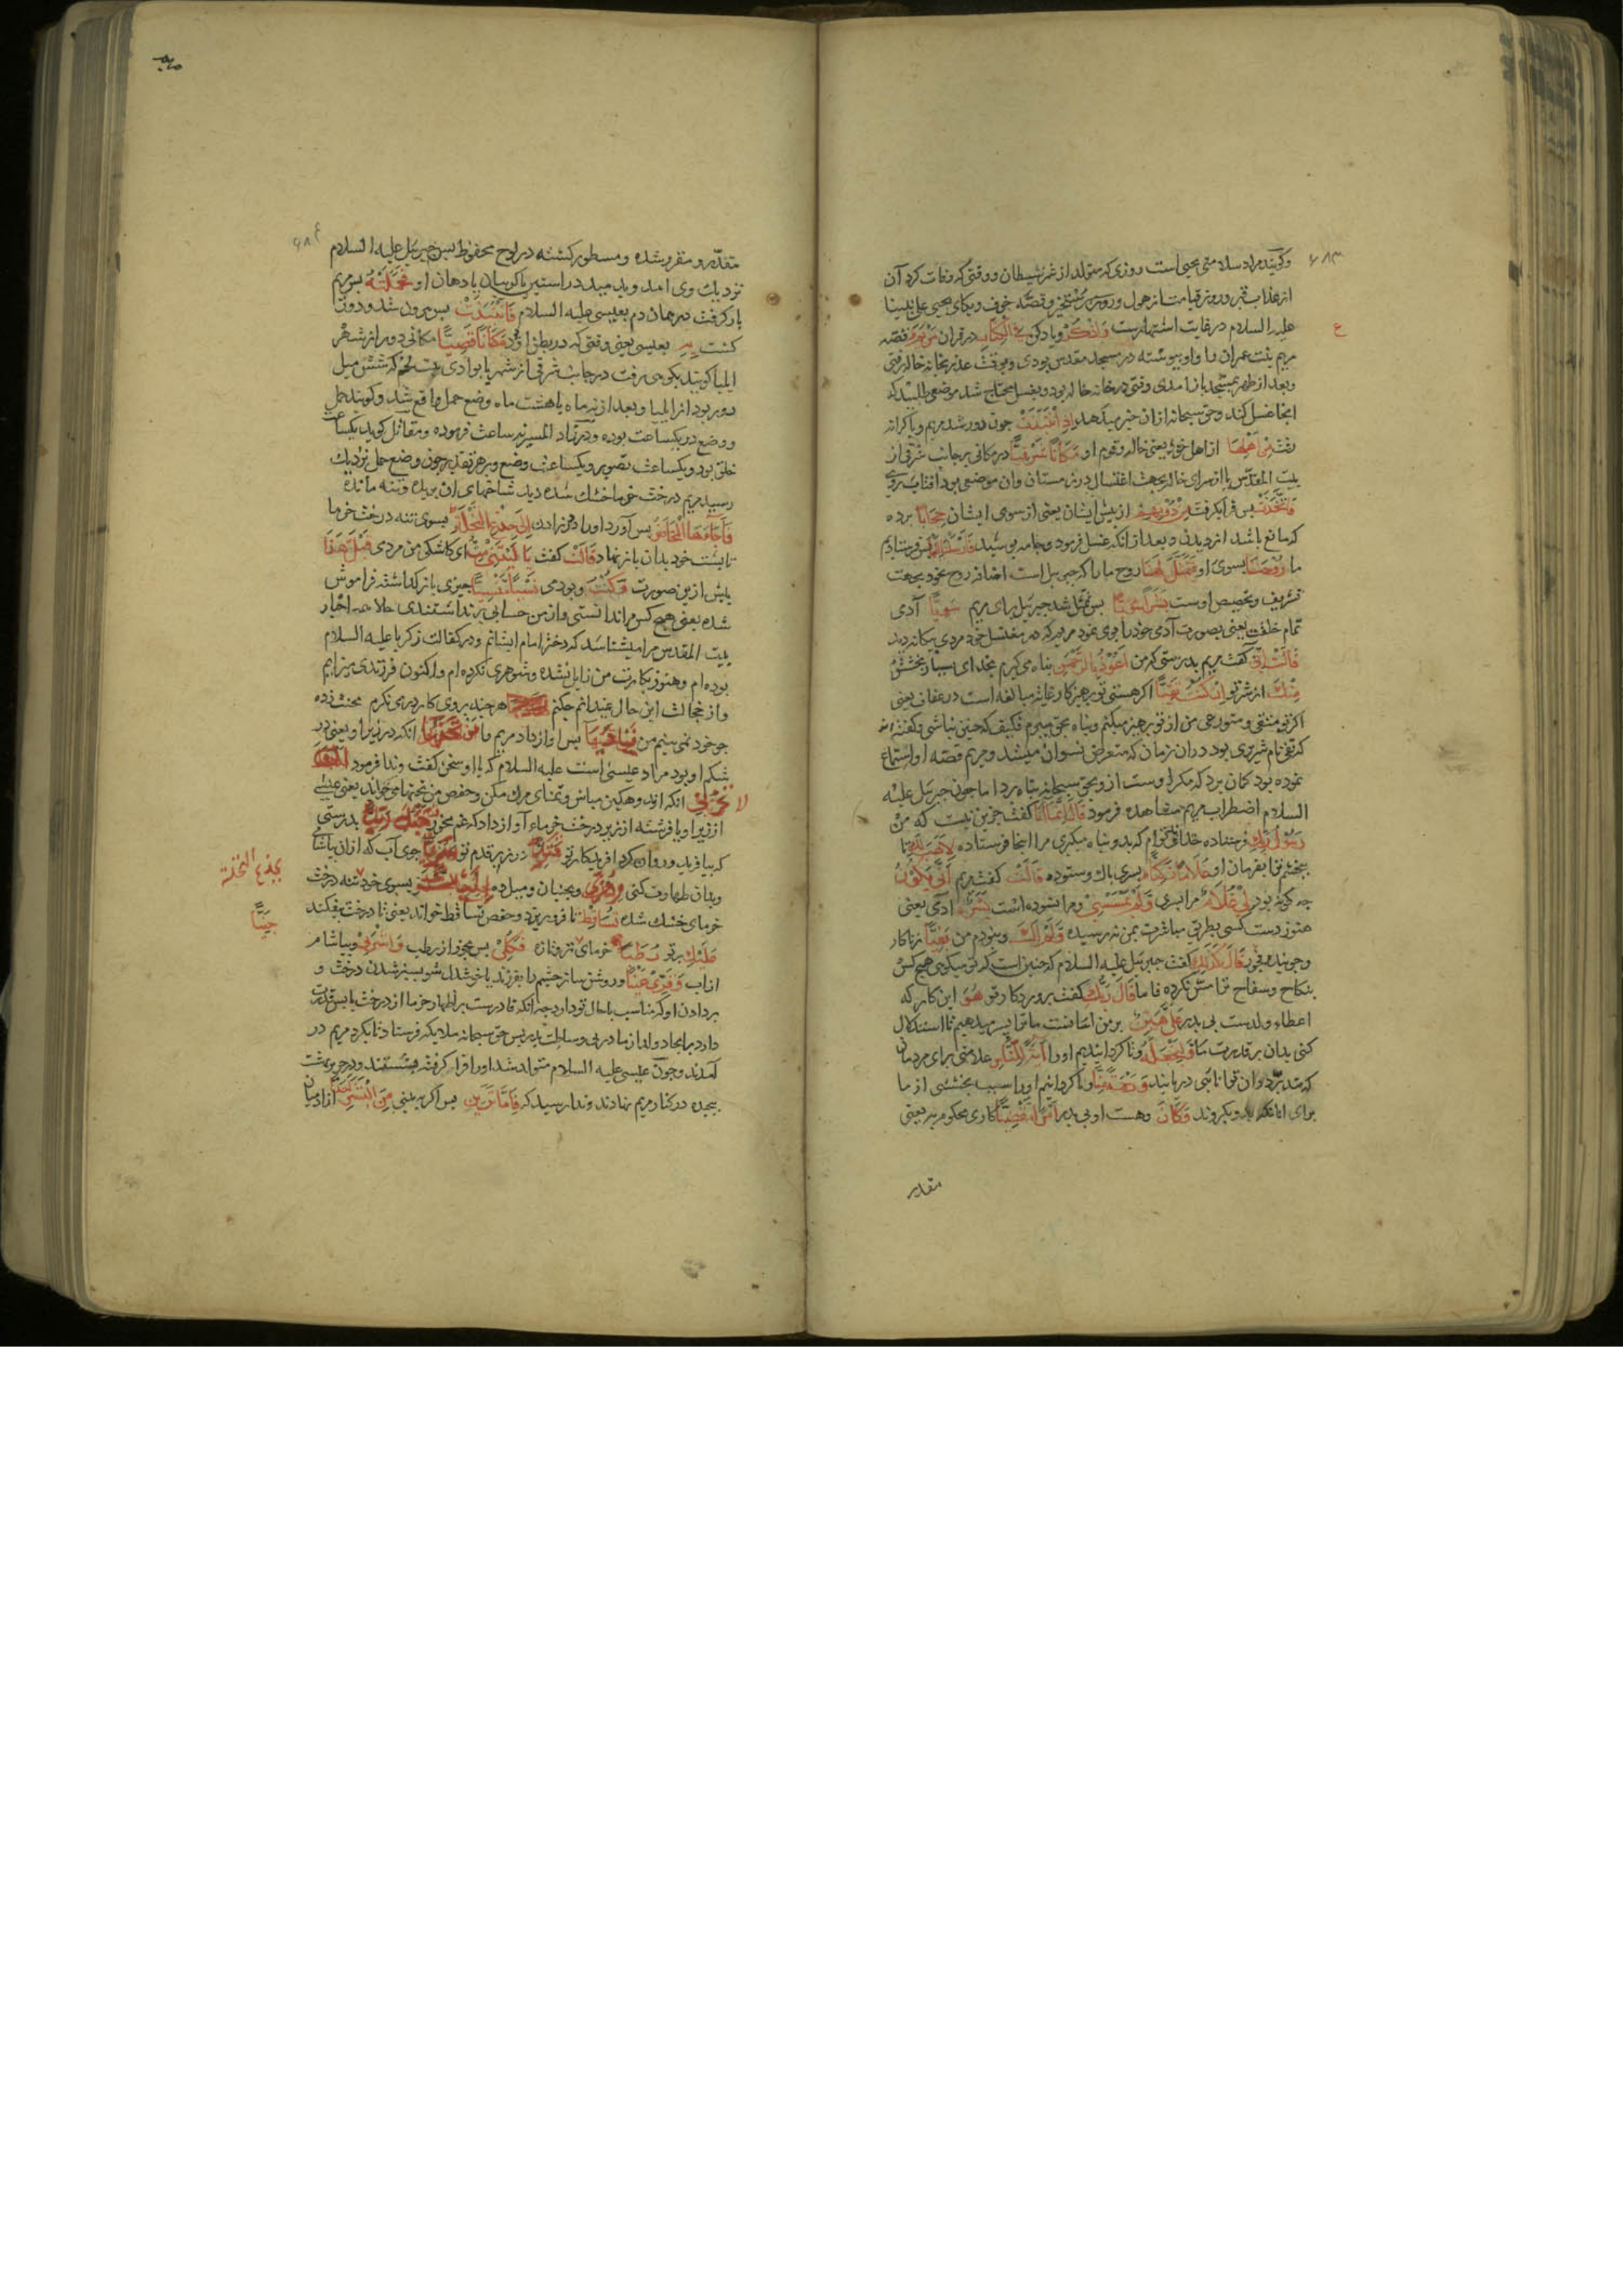 ۶۸۳
وکویند مراد سلامتی یحیی است روزی که متولد از غمز شیطان و وقتی که وفات کرد آن
از عذاب قبر و روز قیامت از هول و روز رستخیز و قصه خوف و بکای یحیی علی نبینا
علیه السلام در غایت اشتهارست وَاذْكُرْ و یاد کن فِي الْكِتَابِ در قران مَرْيَمَ قصه
ع
مریم بنت عمران را و او پیوسته در مسجد مقدس بودی و بوقت عذر بخانه خاله رفتی
و بعد از طهر بمسجد باز امدی وقتی در خانه خاله بود و بغسل محتاج شد موضعی طلبید که
انجا غسل کند و حق سبحانه از ان خبر میدهد اِذِ انْتَبَذَتْ چون دور شد مریم و با کرانه
رفت مِنْ اَهْلِهَا از اهل خود یعنی خاله و قوم او مَكَانًا شَرْقِيًّا در مکانی بر جانب شرقی از
بیت المقدس یا از سرای خاله بجهت اغتسال در زمستان وان موضعی بود افتاب روی
فَاتَّخَذَتْ پس فراگرفت مِنْ دُونِهِمْ از پیش ایشان یعنی از سوی ایشان حِجَابًا پرده
که مانع باشد از دیدن و بعد از انکه غسل فرمود و جامه پوشید فَاَرْسَلْنَا پس فرستادیم
ما رُوحَنَا بسوی او فَتَمَثَّلَ لَهَا روح ما را که جبریل است اضافه روح بخود بجهت
تشریف و تخصیص اوست بَشَرًا سَوِيًّا پس متمثل شد جبرئیل برای مریم سَوِيًّا آدمی
تمام خلقت یعنی بصورت آدمی خود را بوی نمود مریم که در مغتسل خود مردی بیکانه دید
قَالَتْ اِنِّي کفت مریم بدرستی که من اَعُوذُ بِالرَّحْمٰنِ پناه می کیرم بخدای بسیار بخشش
مِنْكَ از شر تو اِنْ كُنْتَ تَقِيًّا اکر هستی تو پرهیزکار و غایة مبالغه است در عفاف یعنی
اکر تو متقی و متورعی من از تو پرهیز میکنم و پناه بحق میبرم فکیف که چنین نباشی و کفته اند
که تقی نام شریری بود دران زمان که متعرض نسوان میشد و مریم قصه او استماع
نموده بود کمان برد که مکر اوست ازو بحق سبحانه پناه برد اما چون جبرئیل علیه
السلام اضطراب مریم مشاهده فرمود قَالَ اِنَّمَا اَنَا کفت جزین نیست که من
رَسُولُ رَبِّكِ فرستاده خداوند توام که بدو پناه میکیری مرا اینجا فرستاده لِاَهَبَ لَكِ تا
ببخشم ترا بفرمان او غُلَامًا زَكِيًّا پسری پاک و ستوده قَالَتْ کفت مریم اَنّٰى يَكُونُ
چه کونه بود لِي غُلَامٌ مرا پسری وَلَمْ يَمْسَسْنِي و مرا نسوده است بَشَرٌ ادمی یعنی
هنوز دست کسی بطریق مباشرت بمن نه رسیده وَلَمْ اَكُ و نبودم من بَغِيًّا زناکار
و جوینده فجور قَالَ كَذٰلِكِ کفت جبرئیل علیه السلام که چنین است که تو میکویی هیچ کس
بنکاح و سفاح ترا مس نکرده فاما قَالَ رَبُّكِ کفت پروردکار تو هُوَ این کار که
اعطاء ولدست بی پدر عَلَيَّ هَيِّنٌ بر من اسانست ما ترا پسر میدهیم تا استدلال
کنی بدان بر قدرت ما وَلِنَجْعَلَهُ و تا کردانیدیم او را اٰيَةً لِلنَّاسِ علامتی برای مردمان
که تدبر دران توانائی دریابند وَرَحْمَةً مِنَّا و تا کردانیم او را سبب بخششی از ما
برای انانکه بدو بکروند وَكَانَ و هست او بی پدر اَمْرًا مَقْضِيًّا کاری محکوم به یعنی
مقدر
۶۸۴
مقدر و مقرر شده و مسطور کشته در لوح محفوظ پس جبرئیل علیه السلام
نزدیک وی امد و بدمید در استین یا کریبان یا دهان او فَحَمَلَتْهُ پس مریم
بار کرفت در همان دم بعیسی علیه السلام فَانْتَبَذَتْ پس بیرون شد و دور
کشت بِهِ بعیسی یعنی وقتی که در بطن او بود مَكَانًا قَصِيًّا مکانی دور از شهر
ایلیا کویند بکوهی رفت در جانب شرقی از شهر یا بوادی بیت لحم که شش میل
دور بود از ایلیا و بعد از نه ماه یا هشت ماه وضع حمل واقع شد و کویند حمل
و وضع در یکساعت بوده و در زاد المسیر نه ساعت فرموده و مقاتل کوید یکساعت
خلق بود و یکساعت تصویر و یکساعت وضع و بر هر تقدیر چون وضع حمل نزدیک
رسید مریم درخت خرما خشک شده دید شاخهای ان بریده و تنه مانده
فَاَجَاءَهَا الْمَخَاضُ پس آورد او را درد زادن اِلٰى جِذْعِ النَّخْلَةِ بسوی تنه درخت خرما
تا پشت خود بدان باز نهاد قَالَتْ کفت يَا لَيْتَنِي مِتُّ ای کاشکی من مردی قَبْلَ هٰذَا
پیش ازین صورت وَكُنْتُ و بودمی نَسْيًا مَنْسِيًّا چیزی باز کذاشته فراموش
شده یعنی هیچ کس مرا ندانستی و از من حسابی برنداشتندی حالا همه احبار
بیت المقدس مرا میشناسند که دختر امام ایشانم و در کفالت زکریا علیه السلام
بوده ام و هنوز بکارت من زایل نشده و شوهری نکرده ام و اکنون فرزندی میزایم
و از خجالت این حال نمیدانم چکنم هر چند بروی کار درمی نکرم محنت زده
چو خود نمی بینم من فَنَادٰيهَا پس اواز داد مریم را مَنْ تَحْتَهَا انکه در زیر او یعنی در
شکم او بود مراد عیسی است علیه السلام که با او سخن کفت و ندا فرمود
لا
تَحْزَنِي انکه اندوهکین مباش و تمنای مرک مکن و حفص من تحتها می خواند یعنی عیسی
از زیر او یا فرشته از زیر درخت خرما آواز داد که غم مخور قَدْ جَعَلَ رَبُّكِ بدرستی
که بیافرید و روان کرد افریدکار تو تَحْتَكِ در زیر قدم تو سَرِيًّا جوی آب که ازان بیاشامی
و بدان طهارت کنی وَهُزِّي و بجنبان و میل ده اِلَيْكِ بسوی خود تنه درخت
بجذع النخلة
خرمای خشک شده تُسَاقِطْ تا فرو ریزد و حفص تساقط خواند یعنی تا درخت بیفکند
جَنِيًّا
عَلَيْكِ بر تو رُطَبًا خرمای تر و تازه فَكُلِي پس بخور از رطب وَاشْرَبِي و بیاشام
از اب وَقَرِّي عَيْنًا و روشن ساز چشم را بفرزند یا خوشدل شو بسبز شدن درخت و
بر دادن او که مناسب با حال تو دارد چه انکه قادرست بر اظهار خرما از درخت یابس قدرت
دارد بر ایجاد ولد از مادر بی وساطت پدر پس حق سبحانه ملایکه فرستاد تا بکرد مریم در
آمدند و چون عیسی علیه السلام متولد شد او را فرا کرفته بشستند و در حریر بهشت
پیچیده در کنار مریم نهادند و ندا رسید که فَاِمَّا تَرَيِنَّ پس اکر ببینی مِنَ الْبَشَرِ اَحَدًا از ادمیان